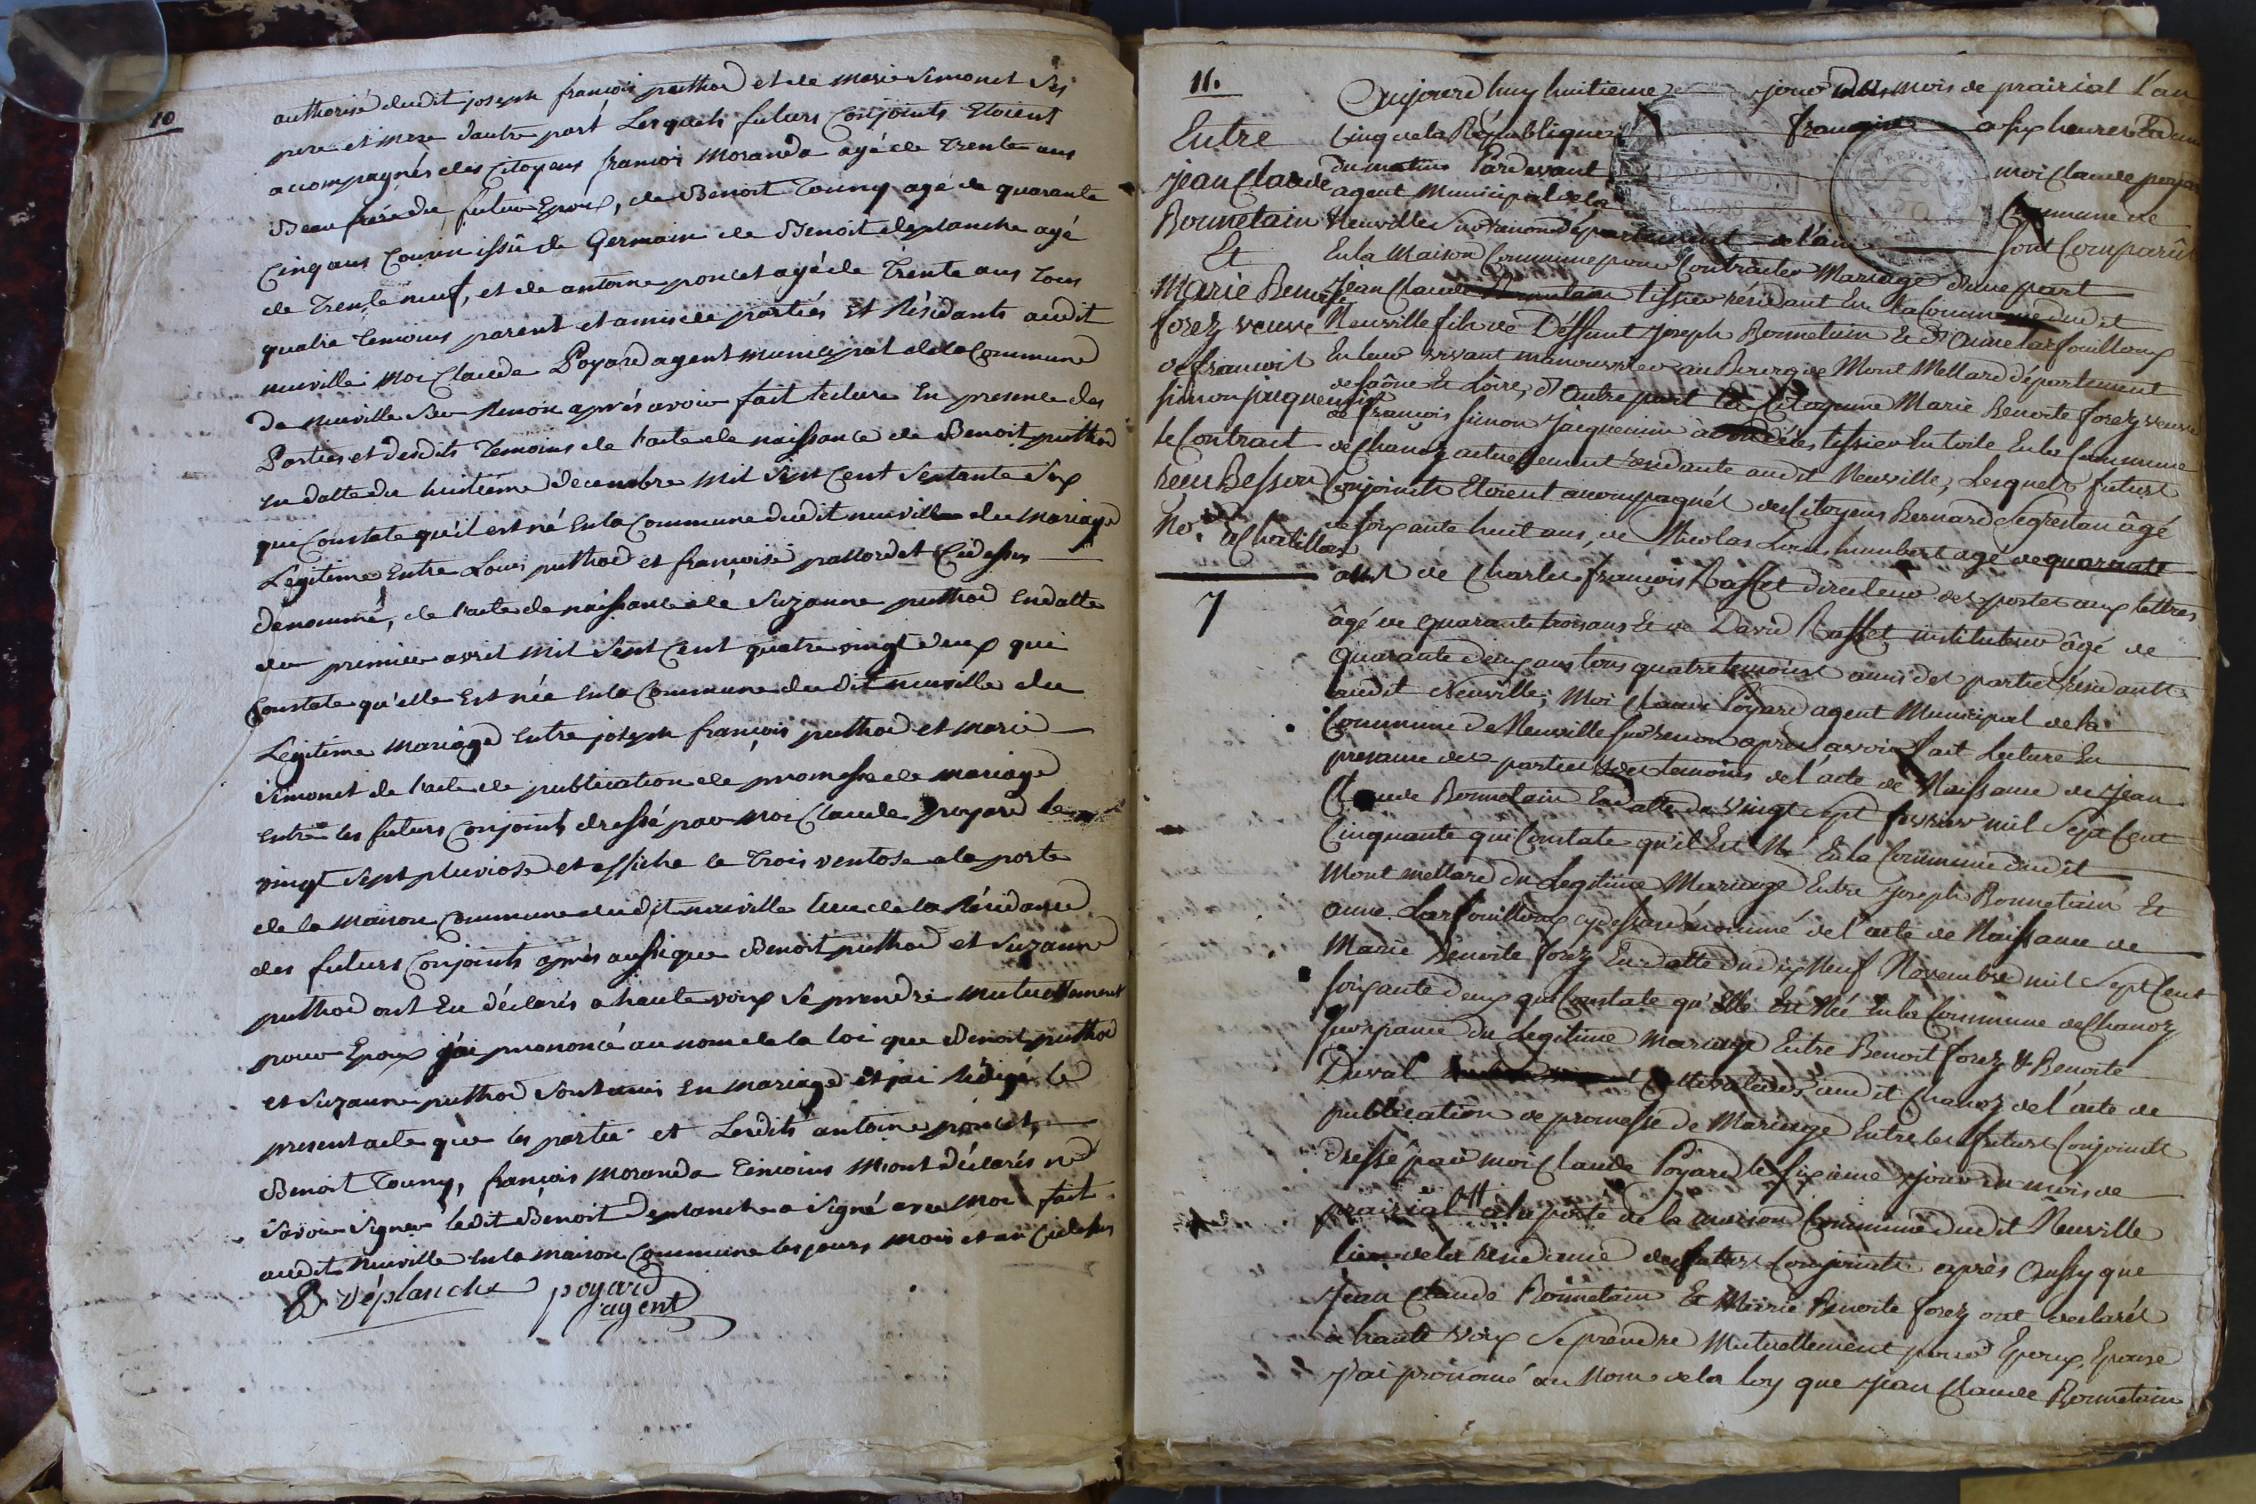 10
authorisé dudit joseph françois puthod et de marie Simonet Ses
pere et mere dautre part Lesquels futurs Conjoints Etoient
accompagnés des Citoyens françois Moranda agé de Trente ans
Beau frere du futur Epoux, de Benoit Touny agé de quarante
Cinq ans Cousin issû de Germain de Benoit deplanche agé
de Trente neuf, et de antoine poncet agé de Trente ans Tous
quatre temoins parent et amis de parties Et Résidants audit
neuville moi Claude Poyard agent municipal de la Commune
de neuville Sur Renon aprés avoir fait lecture En presence des
Parties et desdits Temoins de l'acte de naissance de Benoit puthod
en datte du huitième decembre mil Sept Cent Septante Six
qui Constate qu'il est né En la Commune dudit neuville du mariage
Légitime Entre Louis puthod et françoise pattordet Cidessus
denommé, de l'acte de naissance de Suzanne puthod En datte
du premier avril mil Sept Cent quatre vingt deux qui
Constate qu'elle Est née En la Commune du dit neuville du
Légitime mariage Entre joseph françois puthod et marie
Simonet de l'acte de publication de promesse de mariage
Entre les futurs Conjoints dressé par moi Claude poyard le
vingt Sept pluviose et affiché le Trois ventose a la porte
de la maison Commune dudit neuville lieu de la Résidance
des futurs Conjoints aprés aussi que Benoit puthod et Suzanne
puthod ont Eu déclarés a haute voix Se prendre mutuellement
pour Epoux j'ai prononcé au nom de la loi que Benoit puthod
et Suzanne puthod Sont unis En mariage et j'ai Rédigé le
present acte que les parties et Lesdits antoine poncet,
Benoit Touny, françois moranda Temoins m'ont déclarés ne
Savoir Signer ledit Benoit Deplanche a Signé avec moi fait
audit neuville En la maison Commune les jours mois et an Cidessus
B Déplanche poyard
agent
11.
Entre
jean Claude
Bonnetain
Et
Marie Benoite
forez veuve
de françois
simon jacquemin
le Contract
recu Besson
No.re a Chatillon
7
Aujourd'huy huitieme jour du mois de prairial l'an
Cinq de la République française a six heures
du matin Pardevant moi Claude poyard
agent Municipal de la Commune de
Neuville Sur Renon département de l'ain Sont Comparût
En la Maison Commune pour Contracter Mariage d'une part
Jean Claude Bonnetain tissier résidant En la Commune dudit
Neuville fils de Deffunt Joseph Bonnetain Et d'Anne Larfouilloux
En leur vivant manouvrier au Bourg de Mont Mellard département
de Saône Et Loire, d'Autre part la Citoyenne Marie Benoite forez veuve
de françois Simon Jacquemin tissier En toile En la Commune
de Chanoz actuellement residante audit Neuville, Lesquels futurs
Conjoints Etoient accompagnés des Citoyens Bernard Segrestan âgé
de soixante huit ans, de Nicolas Louis humbert agé de quarante
ans de Charles françois Rasset directeur des postes aux lettres
âgé de quarante trois ans Et de David Rasset instituteur âgé de
Quarante deux ans tous quatre temoins amis des parties résidants
audit Neuville; Moi Claude Poyard agent Municipal de la
Commune de Neuville Sur Renon après avoir fait Lecture En
presance des parties Et des temoins de l'acte de Naissance de Jean
Claude Bonnetain En datte du vingt sept fevrier mil Sept Cent
Cinquante qui Constate qu'il Est Né En la Commune dudit
Mont mellard du Légitime Mariage Entre Joseph Bonnetain Et
anne Larfouilloux cydessus dénommé de l'acte de Naissance de
Marie Benoite forez En datte du dix Neuf Novembre mil Sept Cent
soixante deux qui Constate qu'Elle Est Née En la Commune de Chanoz
du Légitime Mariage Entre Benoit forez & Benoite
Duval Cultivateurs audit Chanoz de l'acte de
publication de promesse de Mariage Entre les futurs Conjoints
Dressé par moi Claude Poyard le sixieme jour du mois de
prairial a la porte de la maison Commune dudit Neuville
lieu de la residance des futurs Conjoints après Aussy que
Jean Claude Bonnetain Et Marie Benoite forez ont declarés
à haute voix Se prendre Mutuellement pour Epoux, Epouse
J'ai prononcé au Nom de la loy que Jean Claude Bonnetain